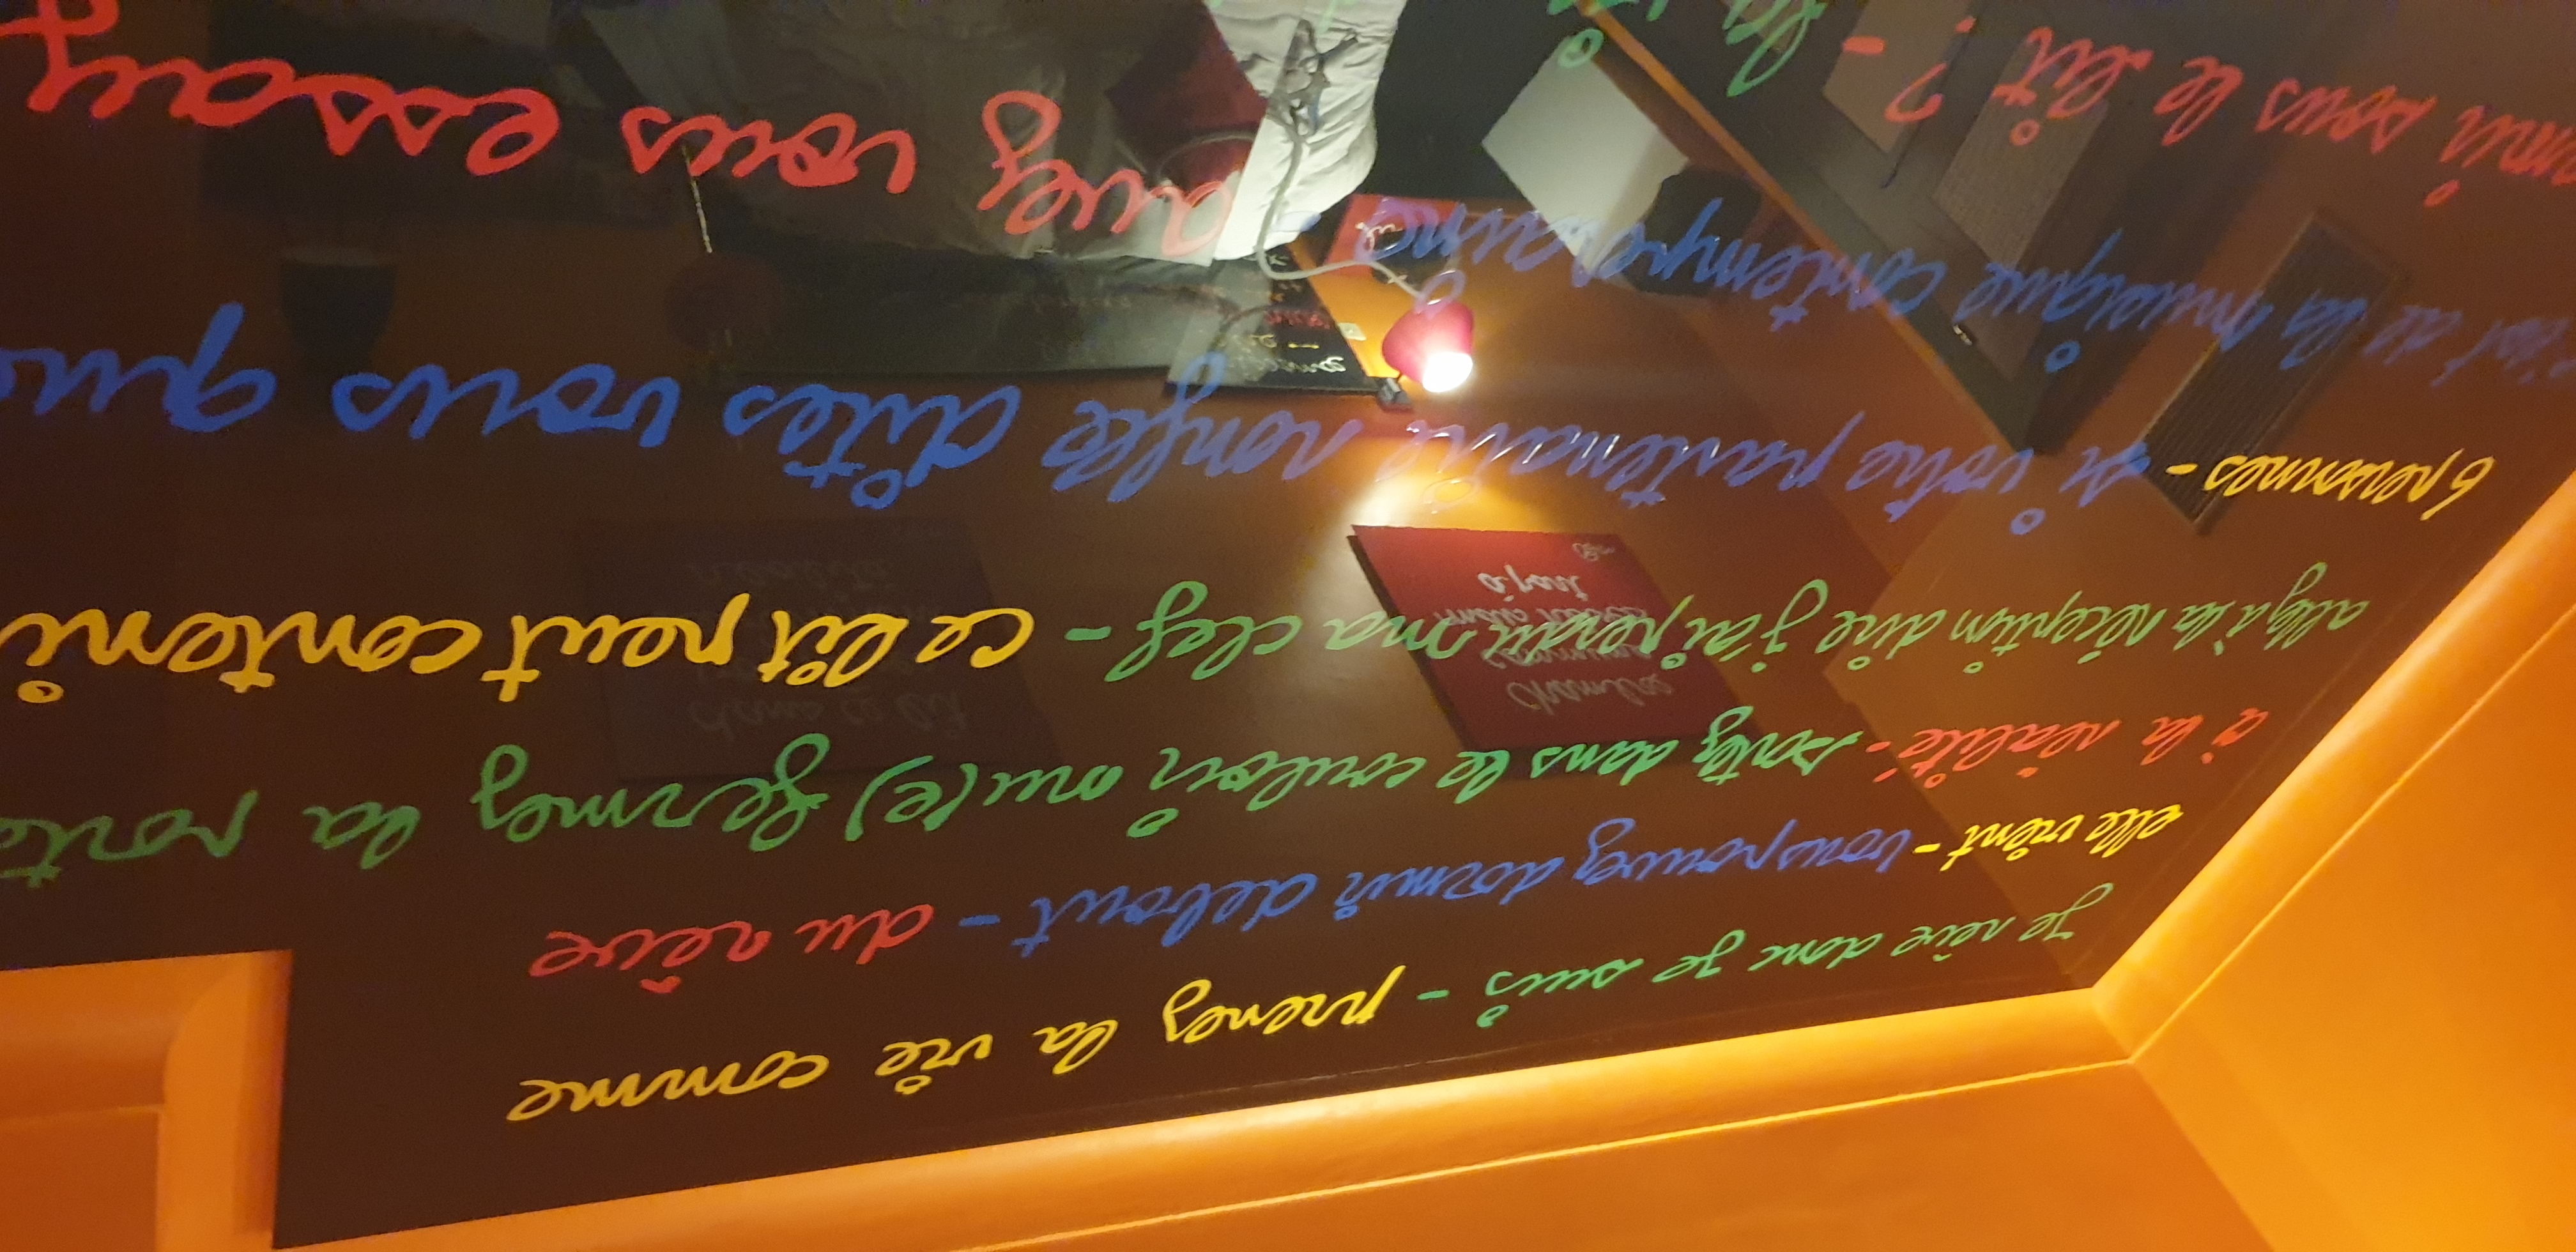 je rêve donc je suis - prenez la vie comme
elle vient - vous pouvez dormir debout - du rêve
à la réalité - sortez dans le couloir nu(e) fermez la porte
allez à la réception dire j'ai perdu ma clef - ce lit peut conteni
6 personnes - si votre partenaire ronfle dites vous que
c'est de la musique contemporaine - avez vous essay
sous le lit ? -
dans ce lit
réalité